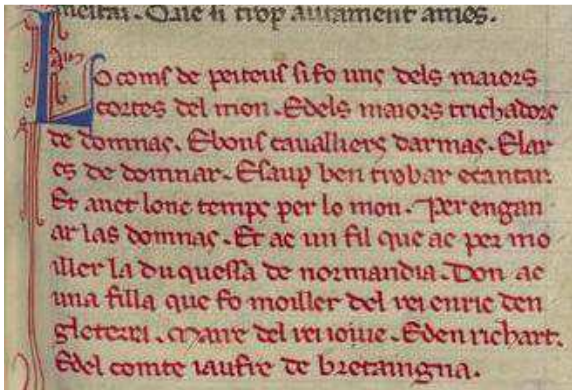 Que si trop auzament ames.
Lo coms de peiteus si fo uns dels maiors
cortes del mon. Edels maiors trichadors
de domnas. Ebons cavalliers darmas. Elar
cs de domnar. Esaup ben trobar ecantar.
Et anet lonc temps per lo mon. Per engan
ar las domnas. Et ac un fil que ac per mo
iller la duquessa de normandia. Don ac
una filla que fo moiller del rei enric den
gleterra. Maire del rei ioue. Eden richart.
Edel comte iaufre de bretaingna.